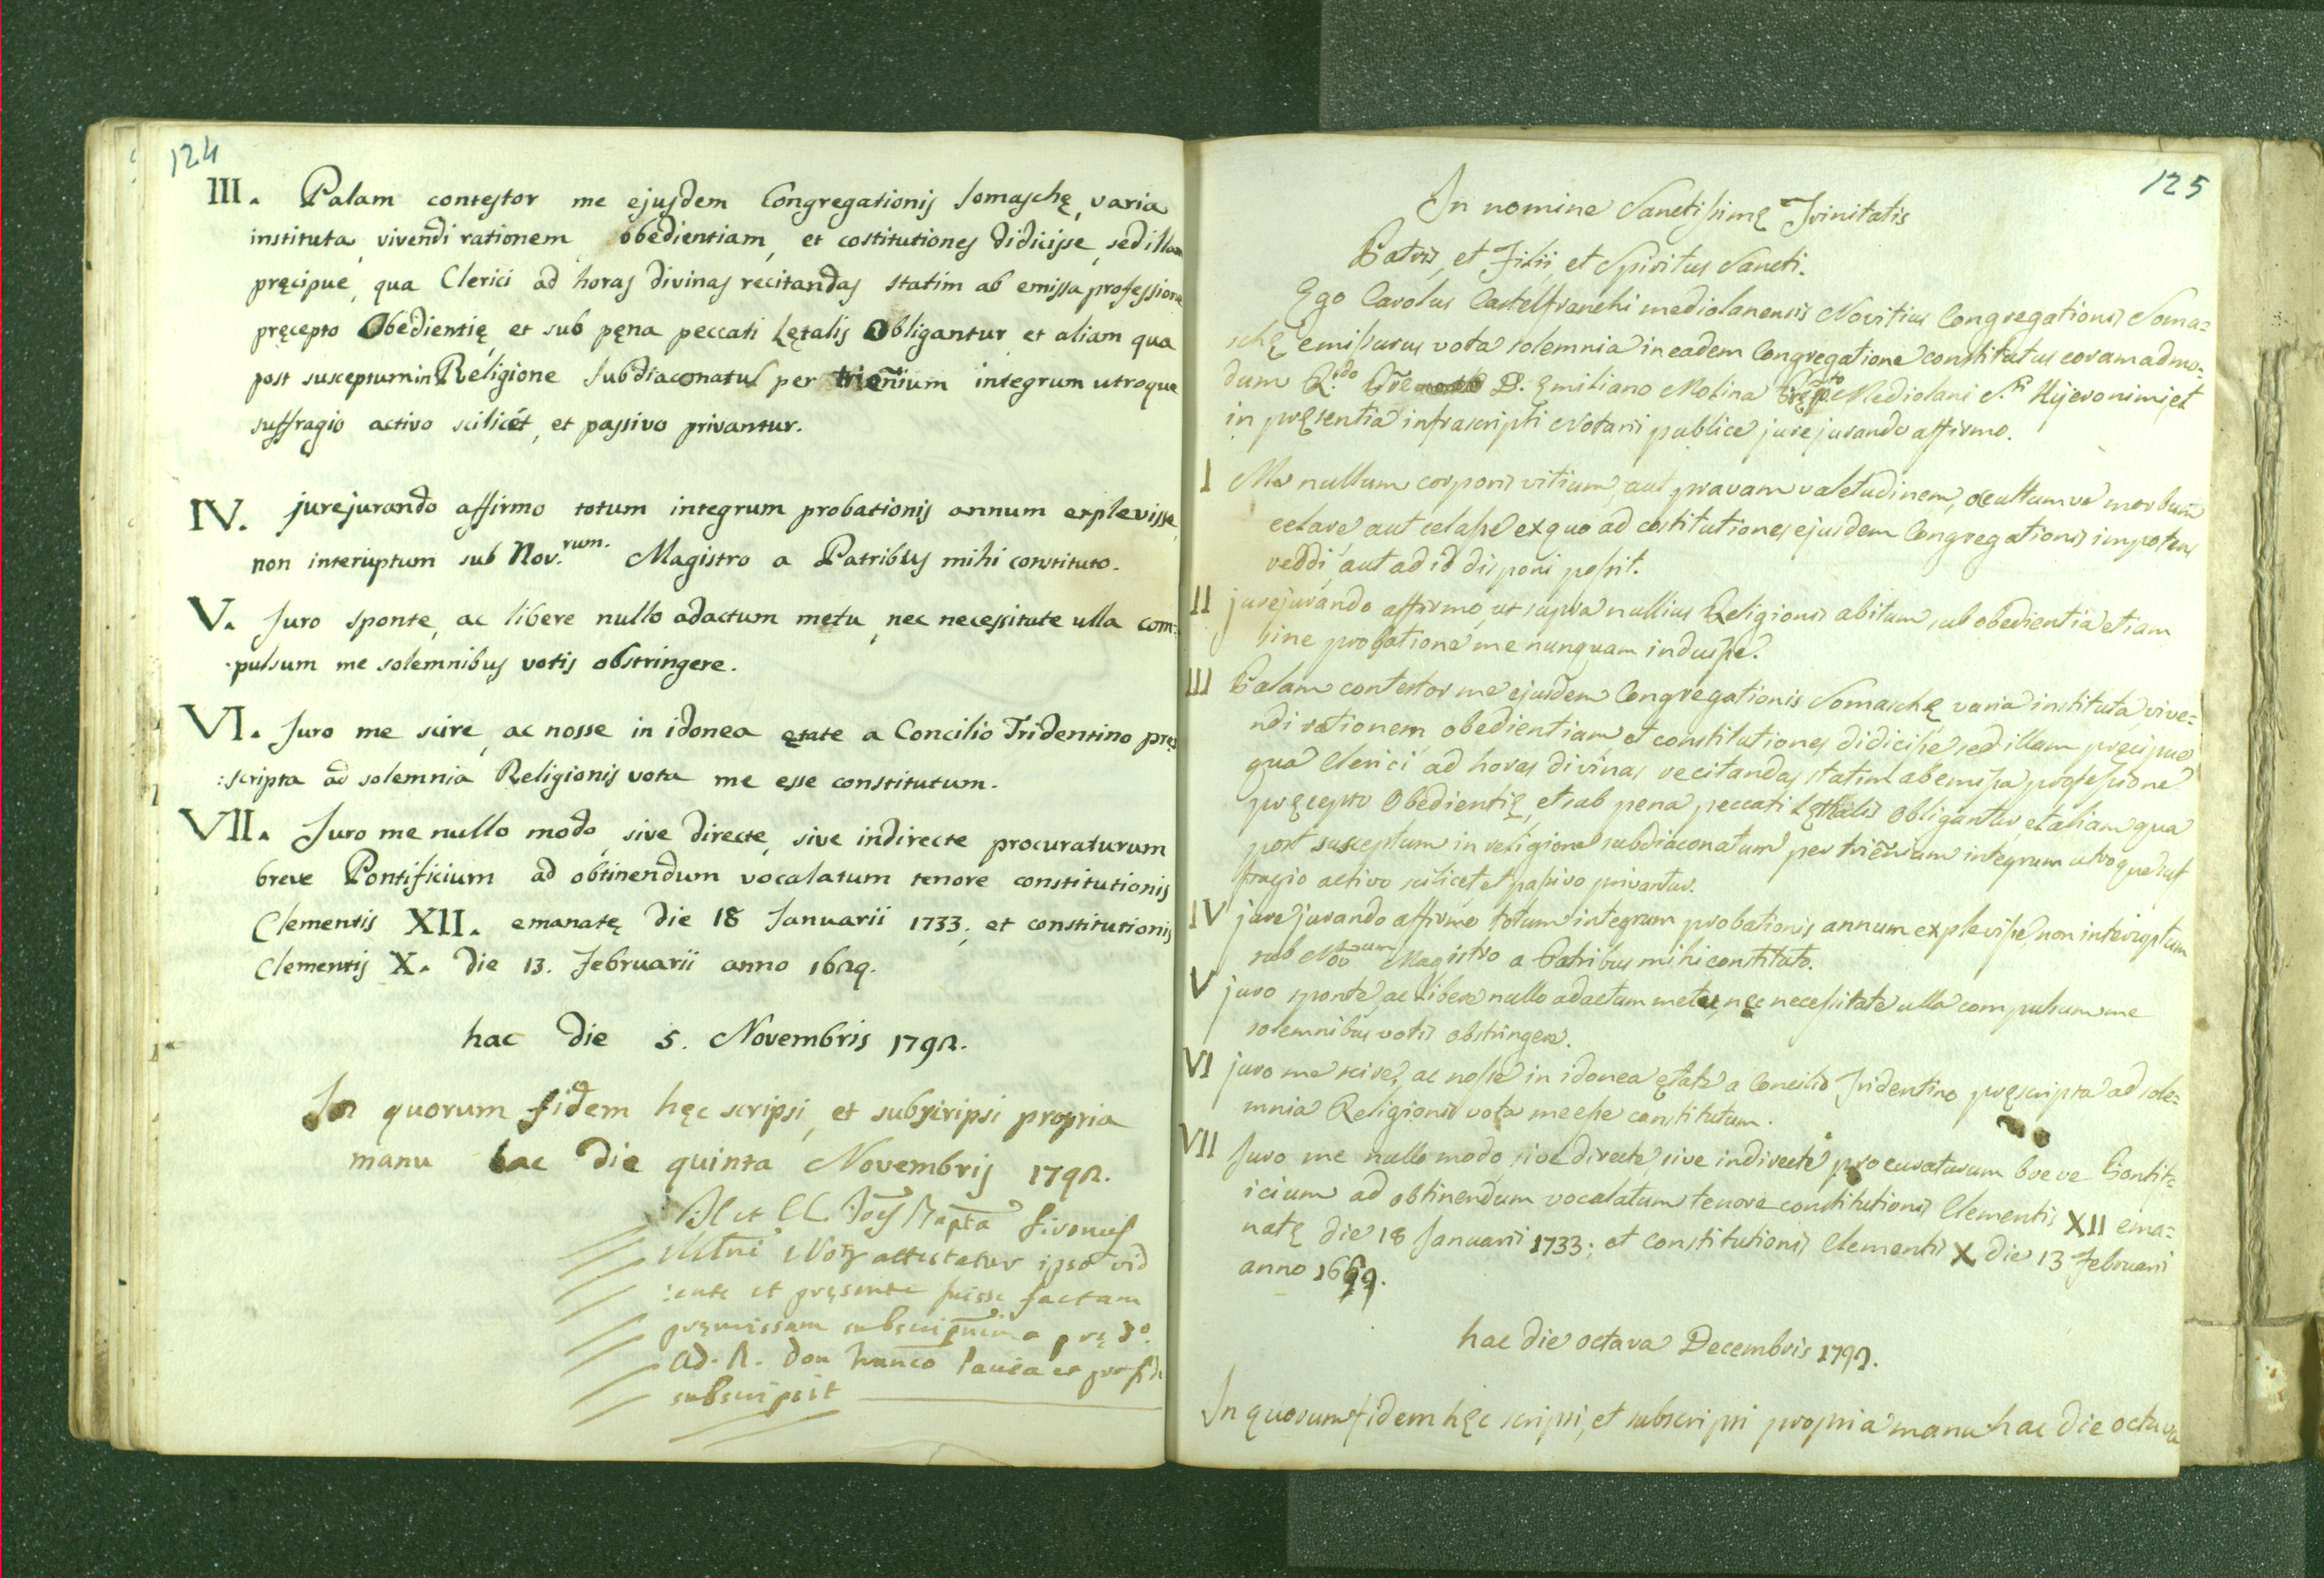 124
III. Palam contestor me ejusdem Congregationis Somaschę, varia
instituta, vivendi rationem, obedientiam, et costitutiones didicisse, sed illam
pręcipue, qua Clerici ad horas divinas recitandas statim ab emissa professione
pręcepto Obedientię, et sub pęna peccati Lętalis Obligantur et aliam qua
post susceptum in Religione Subdiaconatus per trieñium integrum utroque
suffragio activo scilicét, et passivo privantur.
IV. jurejurando affirmo totum integrum probationis annum explevisse,
non interuptum sub Nov.rum. Magistro a Patribus mihi constituto.
V. Juro sponte, ac libere nullo adactum metu, nec necessitute ulla com=
:pulsum me solemnibus votis obstringere.
VI. Juro me scire, ac nosse in idonea ętate a Concilio Tridentino prę=
:scripta ad solemnia Religionis vota me esse constitutum.
VII. Juro me nullo modo, sive directe, sive indirecte procuraturum
breve Pontificium ad obtinendum vocalatum tenore constitutionis
Clementis XII. emanatę die 18 Januarii 1733, et constitutionis
Clementis X. die 13. Februarii anno 1629.
hac die 5. Novembris 1792.
In quorum fidem hęc scripsi, et subscripsi propria
manu hac die quinta Novembris 1792.
attestatur ipso vid
:ente et pręsente fuisse factam
pręmissam a
Ad. R. Don
subscripsit
125
In nomine Sanctissimę Trinitatis
Patris, et Filii, et Spiritus Sancti.
Ego Carolus Castelfranchi mediolanensis Novitius Congregationis Soma=
schę emissurus vota solemnia in eadem Congregatione constitutus coram admo=
dum R.do D. Emiliano Molina Mediolani S.ti Hijeronimi, et
in pręsentia infrascripti Notarii publice jurejurando affirmo.
I Me nullum corporis vitium, aut pravam valetudinem, ocultumve morbum
celare aut celasse ex quo ad costitutiones ejusdem Congregationis impotens
reddi, aut ad id disponi possit.
II jurejurando affirmo, ut supra nullius Religionis abitum, sub obedientia etiam
sine probatione me nunquam induisse.
III Palam contestor me ejusdem Congregationis Somaschę varia instituta, vive=
ndi rationem, obedientiam, et constitutiones didicisse, sed illam pręcipue,
qua Clerici ad horas divinas recitandas statim ab emissa professione
pręcepto Obedientię, et sub pena peccati Lęthalis Obligantur, et aliam qua
post susceptum in religione subdiaconatum per trieñium integrum utroque suf
fragio activo scilicet, et passivo privantur.
IV jurejurando affirmo totum integrum probationis annum explevisse, non interuptum
sub Nov.um Magistro a Patribus mihi constituto.
V juro sponte, ac libere nullo adactum metu, nec necessitate ulla compulsum me
solemnibus votis obstringere.
VI juro me scire, ac nosse in idonea ętate a Concilio Tridentino pręscripta ad sole=
mnia Religionis vota me esse constitutum.
VII Juro me nullo modo, sive directe, sive indirecte procuraturum breve Pontif=
icium ad obtinendum vocalatum tenore constitutionis Clementis XII ema=
natę die 18 Januarii 1733; et constitutionis Clementis X die 13 Februarii
anno
hac die octava Decembris 1792.
In quorum fidem hęc scripsi, et subscripsi propria manu hac die octava